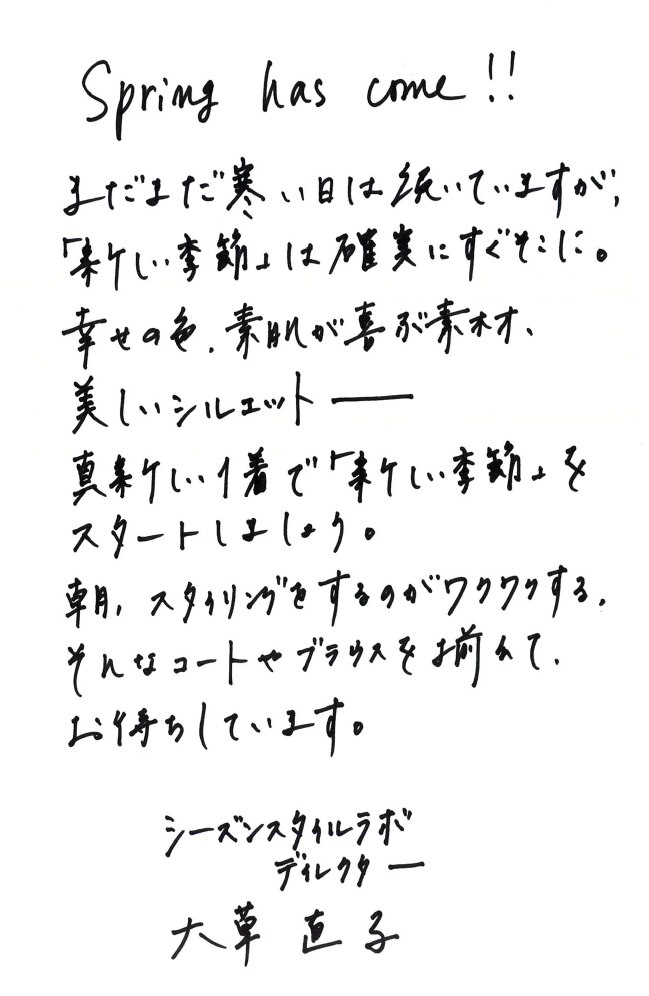 Spring has come!!
まだまだ寒い日は続いていますが、
「新しい季節」は確実にすぐそこに。
幸せの色、素肌が喜ぶ素材、
美しいシルエット——
真新しい1着で「新しい季節」を
スタートしましょう。
朝、スタイリングをするのがワクワクする、
そんなコートやブラウスを揃えて、
お待ちしています。
シーズンスタイルラボ
ディレクター
大草 直子